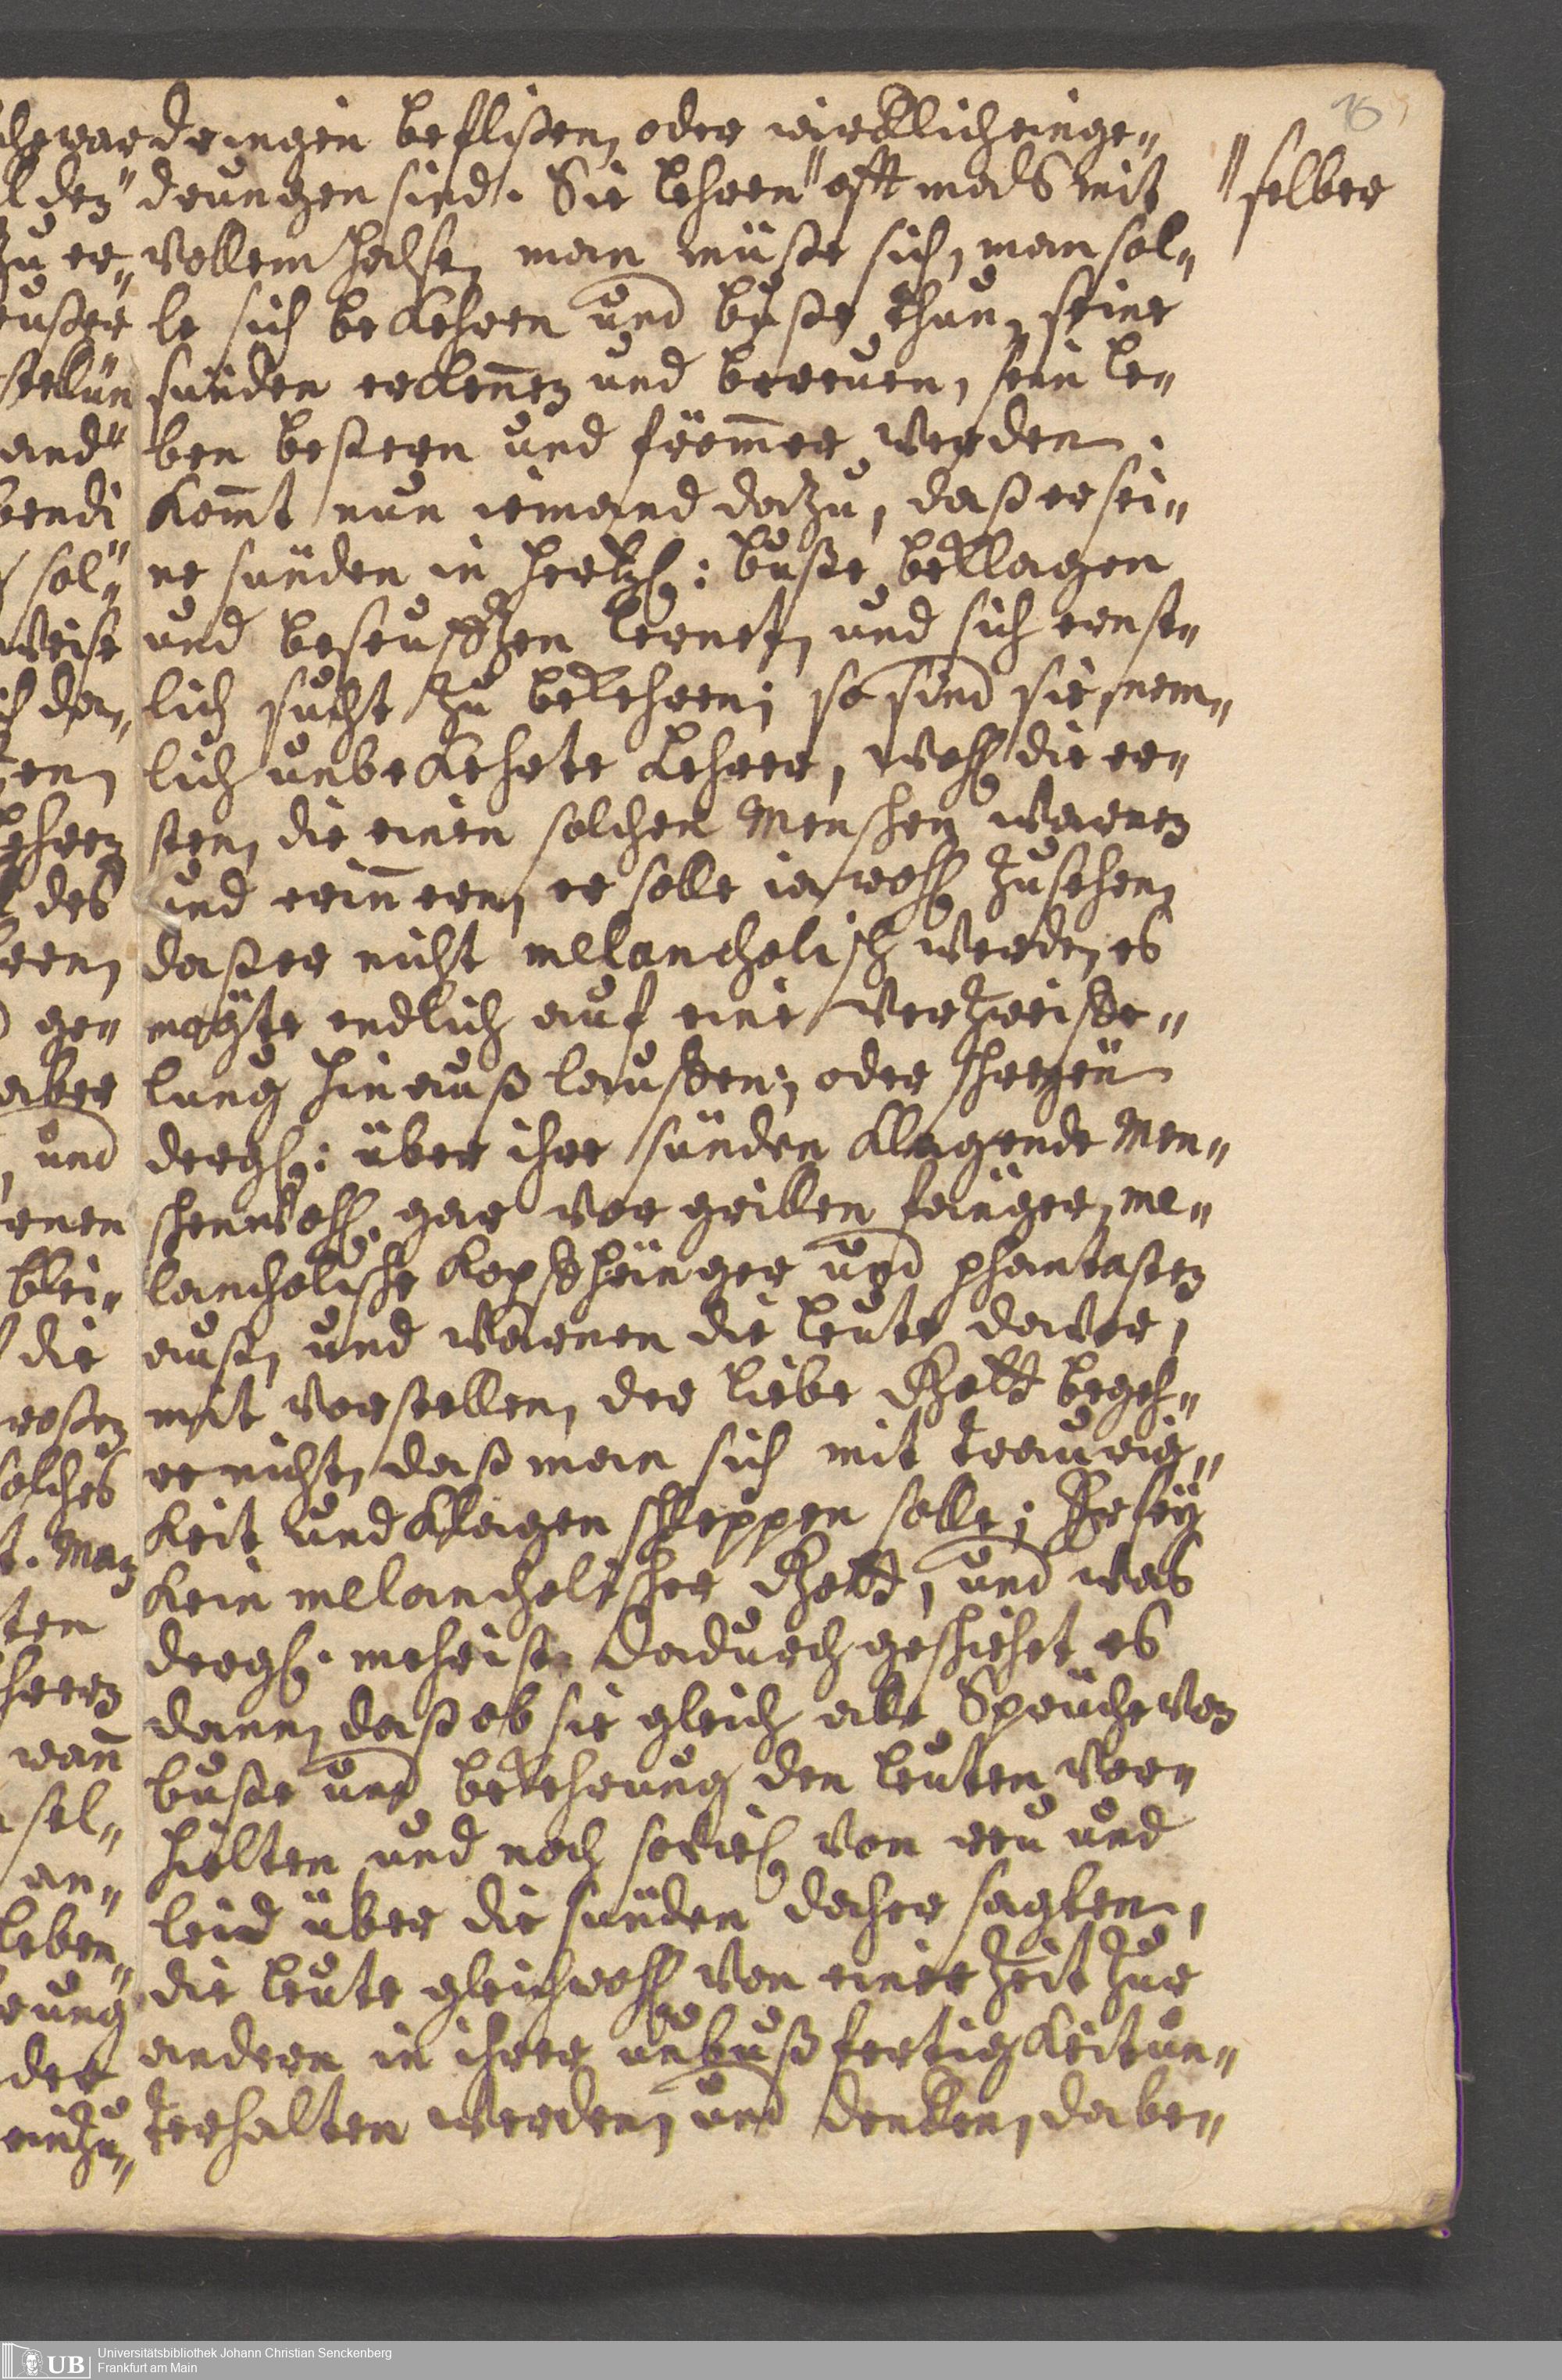 dringen beflißen, oder wircklich einge-
drungen sind. Sie lehren" offtmals mit "selber
vollem Halse, man müße sich, man sol-
le sich bekehren und buße thun, seine
sünden erkennen und bereuen, sein le-
ben beßern und frömmer werden.
Komt nun iemand dazu, daß er sei-
ne sünden in hertzl: buße beklagen
und beseufftzen lernet, und sich ernst-
lich sucht zu bekehren; so sind sie, nem-
lich unbekehrte Lehrer, wohl die er-
sten, die einen solchen Menschen warnen
und erinnern, er solle ia wohl zusehen,
daß er nicht melancholisch werde, es
mögte endlich auf eine verzweiffe-
lung hinauß lauffen; oder schreyen
dergl: über ihre sünden klagende Men-
schen wohl gar vor grillenfänger, me-
lancholische Kopffhänger und phantasten
auß, und warnen die leute davor,
mit vorstellen, der liebe Gott begeh-
re nicht, daß man sich mit traurig-
keit und klagen schleppen solle; Er sey
kein melancholischer Gott, und was
dergl. mehr ist. Dadurch geschiehet es
dann, daß ob sie gleich alle Sprüche von
buße und bekehrung den leuten vor-
hielten und noch soviel von reu und
leid über die sünden daher sagten,
die leute gleichwohl von einer Zeit zur
andern in ihrer unbußfertigkeit un-
terhalten werden, und dencken, dabe-
Universitätsbibliothek Johann Christian Senckenberg
UB Frankfurt am Main